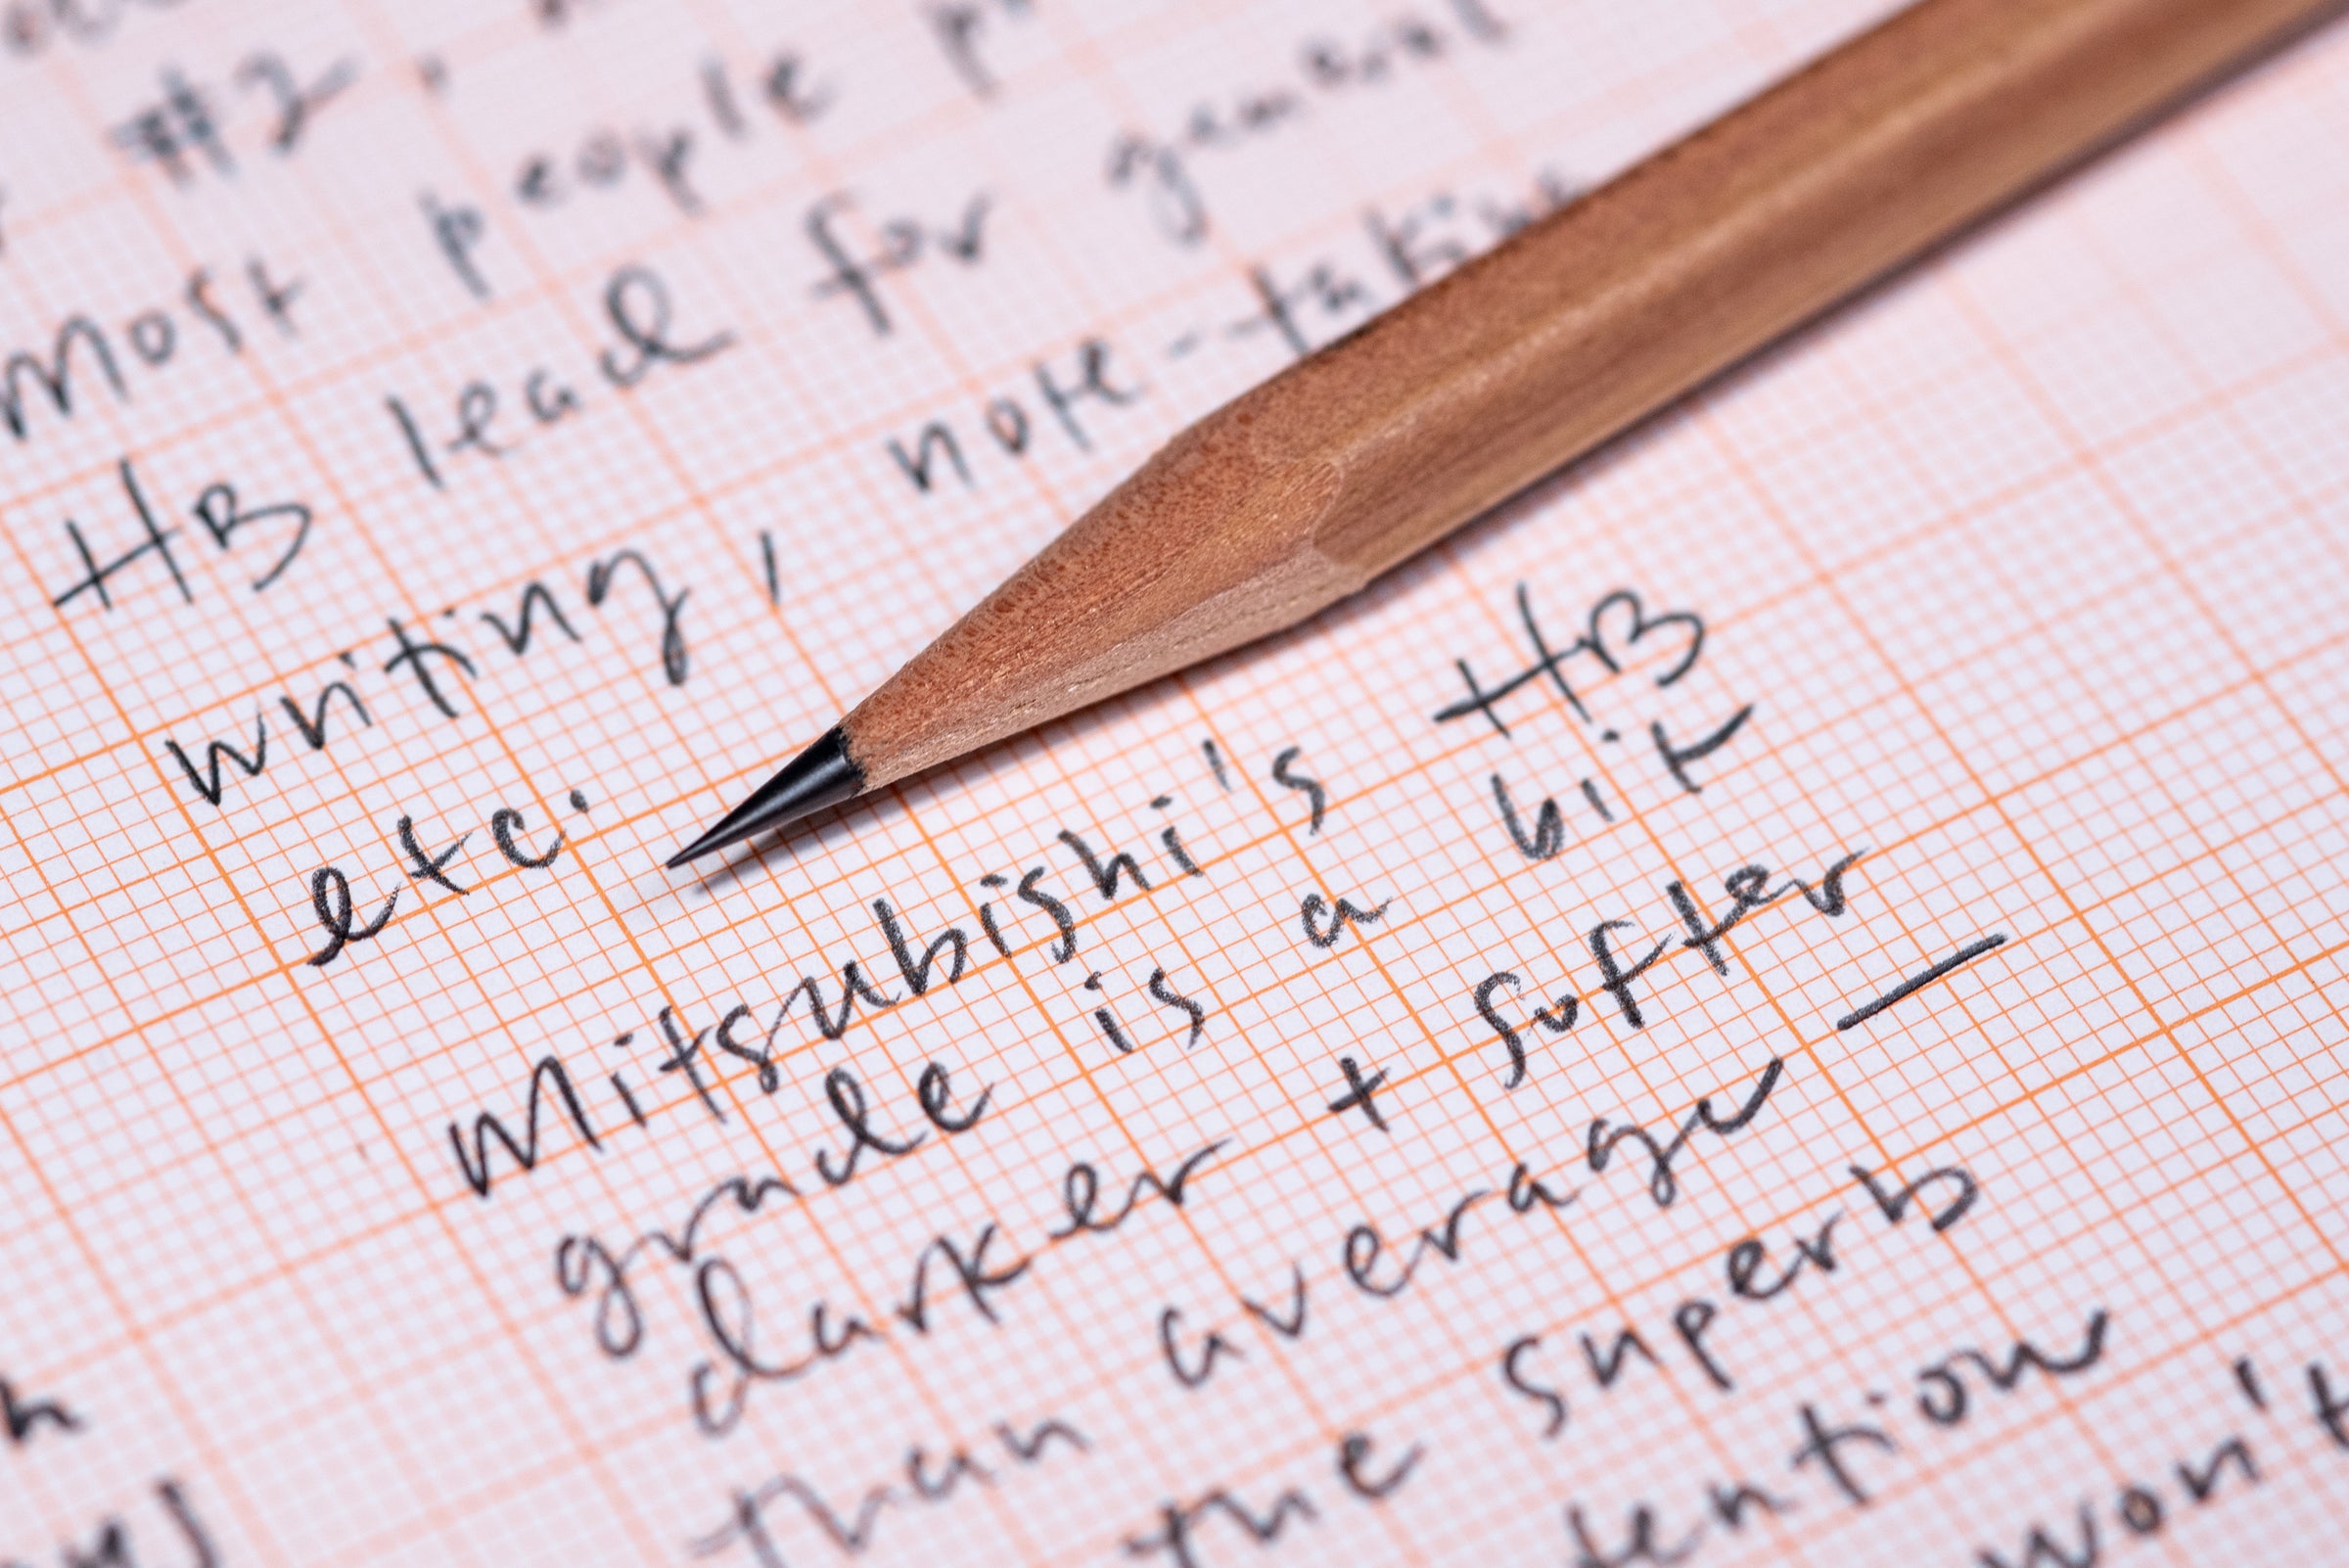 #2,
most people
HB lead for general
writing, note-taking
etc.
Mitsubishi's HB
grade is a bit
darker + softer
than average —
the superb
won't